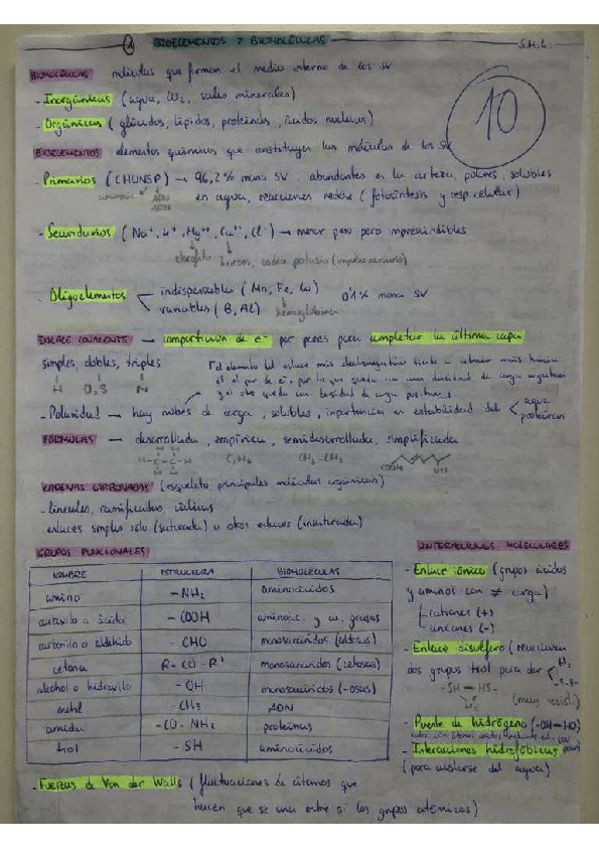 1 BIOELEMENTOS Y BIOMOLÉCULAS S.M.L.
BIOMOLÉCULAS moléculas que forman el medio interno de los SV
- Inorgánicas (agua, CO2, sales minerales)
- Orgánicas (glúcidos, lípidos, proteínas, ácidos nucleicos)
10
BIOELEMENTOS elementos químicos que constituyen las moléculas de los SV
- Primarios (CHONSP) → 96,2% masa SV, abundantes en la corteza, polares, solubles
en agua, reacciones redox (fotosíntesis y resp. celular)
- Secundarios (Na+, K+, Mg++, Ca++, Cl-) → menor peso pero imprescindibles
clorofila huesos, sodio potasio (impulso nervioso)
- Oligoelementos indispensables (Mn, Fe, Cu) 0'1% masa SV
variables (B, Al) hemoglobina
ENLACE COVALENTE → compartición de e- por pares para completar la última capa
simples, dobles, triples
H O,S N
- Polaridad → hay nubes de carga, solubles, importancia en estabilidad del agua
proteínas
FÓRMULAS → desarrollada, empírica, semidesarrollada, simplificada
COOH OH
CADENAS CARBONADAS (esqueleto principales moléculas orgánicas)
- lineales, ramificadas, cíclicas
- enlaces simples sólo (saturada) u otros enlaces (insaturada)
GRUPOS FUNCIONALES
NOMBRE ESTRUCTURA BIOMOLÉCULAS
amino - NH2 aminoácidos
carboxilo o ácido - COOH aminoác. y ác. grasos
carbonilo o aldehído - CHO monosacáridos (aldosas)
cetona R - CO - R' monosacáridos (cetosas)
alcohol o hidroxilo - OH monosacáridos (-osas)
metil - CH3 ADN
amida - CO - NH2 proteínas
tiol - SH aminoácidos
INTERACCIONES MOLECULARES
- Enlace iónico (grupos ácidos
y aminos con ≠ carga)
cationes (+)
aniones (-)
- Enlace disulfuro (reaccionan
dos grupos tiol para dar H2
-S-S-
-SH — HS-
(muy resist.)
- Puente de hidrógeno (-OH—HO)
- Interacciones hidrofóbicas
(para aislarse del agua)
- Fuerzas de Van der Walls (fluctuaciones de átomos que
hacen que se una entre sí los grupos atómicos)